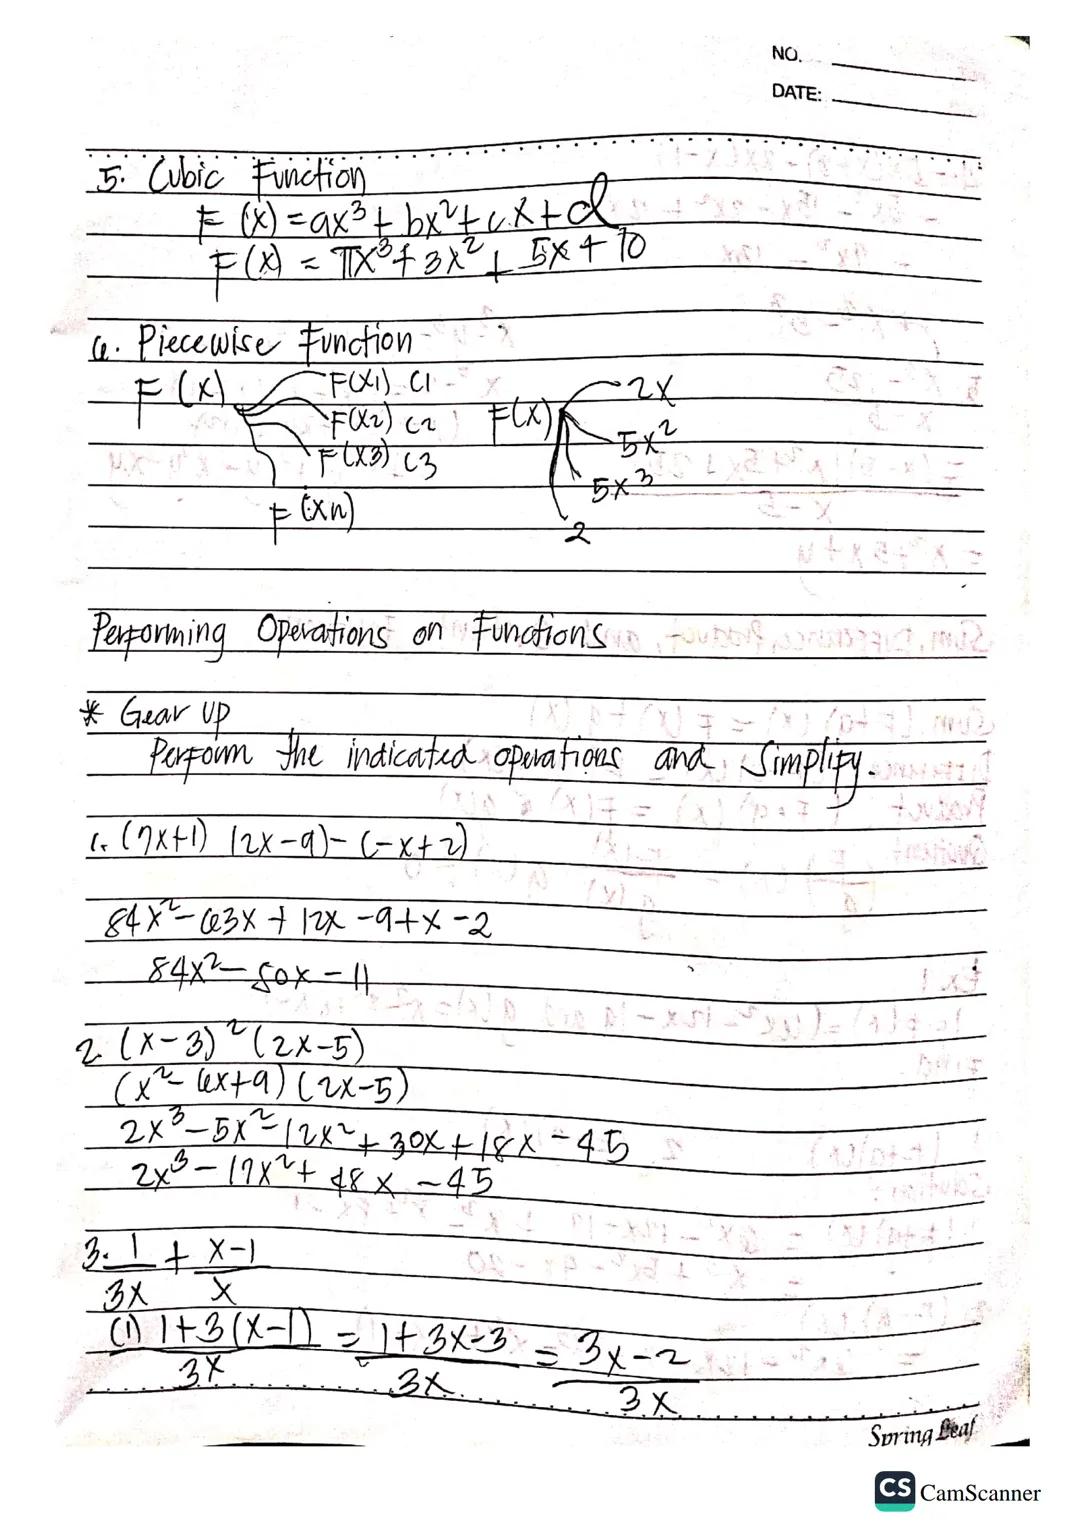 NO.
DATE:
5. Cubic Function
F (x) = ax³ + bx² + cx + d
F (x) = πx³ + 3x² + 5x + 10
6. Piecewise Function
F (x) F(x1) C1
F(x2) C2
F(x3) C3
F (xn)
F(x) 2x
5x²
5x³
2
Performing Operations on Functions
* Gear Up
Perform the indicated operations and Simplify.
1. (7x+1) (2x-9)-(-x+2)
84x² - 63x + 12x - 9 + x - 2
84x² - 50x - 11
2. (x-3)² (2x-5)
(x² - 6x+9) (2x-5)
2x³ - 5x² - 12x² + 30x + 18x - 45
2x³ - 17x² + 48x - 45
3. 1/3x + x-1/x
(1) 1+3(x-1)/3x = 1+3x-3/3x = 3x-2/3x
Spring Leaf
CS CamScanner